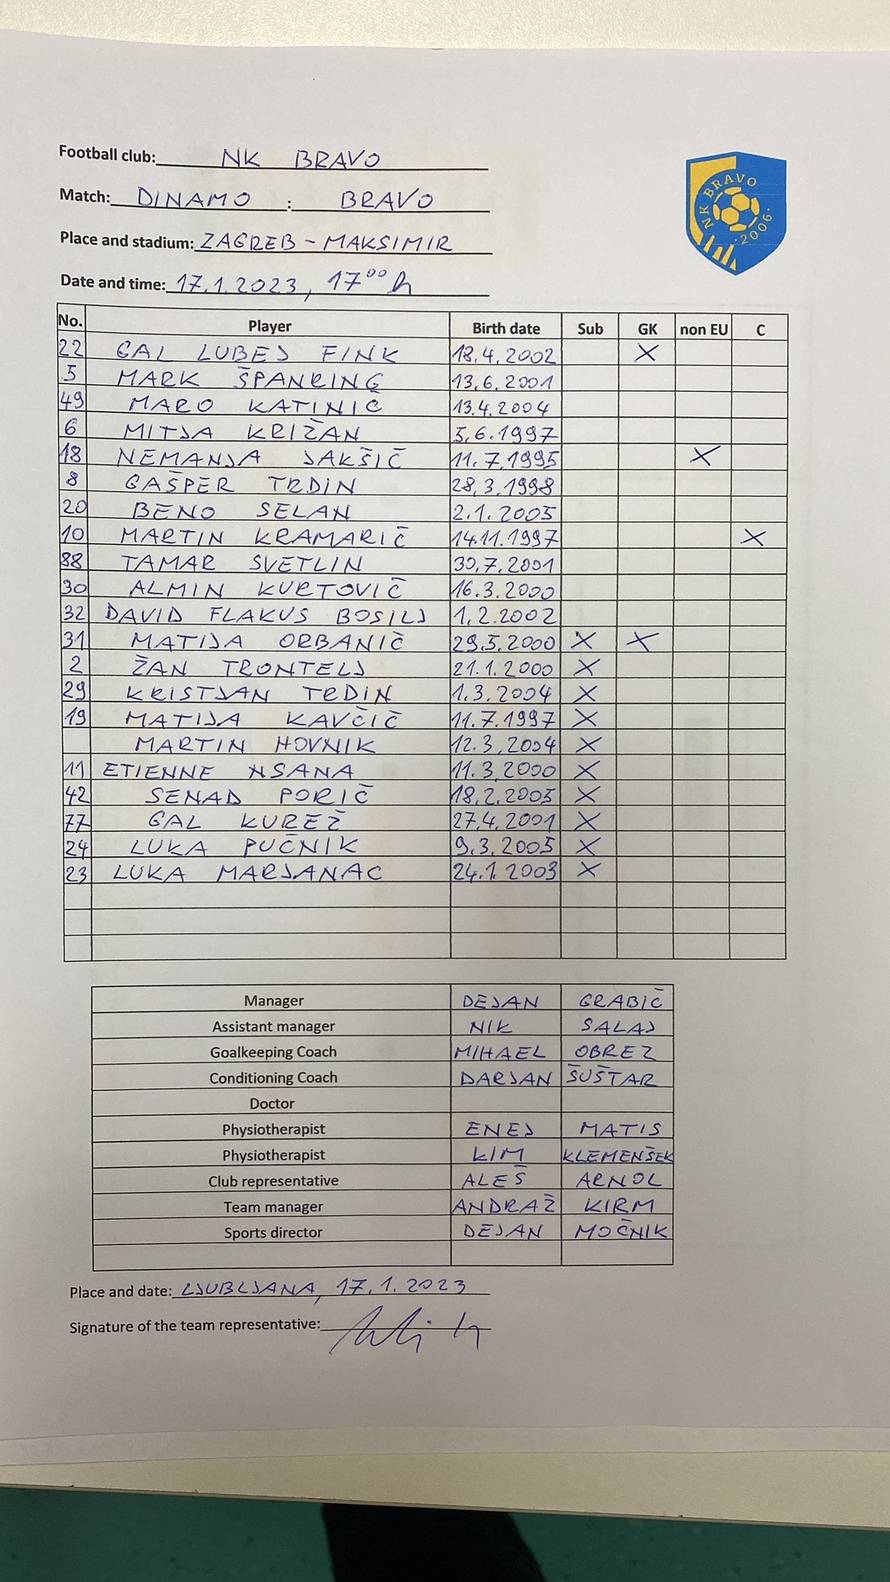 Football club: NK BRAVO
NK BRAVO
·2006·
Match: DINAMO : BRAVO
Place and stadium: ZAGREB - MAKSIMIR
Date and time: 17.1.2023, 17⁰⁰ h
No. Player Birth date Sub GK non EU C
22 GAL LUBEJ FINK 18.4.2002 X
5 MARK ŠPANRING 13.6.2001
49 MARO KATINIČ 13.4.2004
6 MITJA KRIŽAN 5.6.1997
18 NEMANJA JAKŠIČ 11.7.1995 X
8 GAŠPER TRDIN 28.3.1998
20 BENO SELAN 2.1.2005
10 MARTIN KRAMARIČ 14.11.1997 X
88 TAMAR SVETLIN 30.7.2001
30 ALMIN KURTOVIČ 16.3.2000
32 DAVID FLAKUS BOSILJ 1.2.2002
31 MATIJA ORBANIČ 29.5.2000 X X
2 ŽAN TRONTELJ 21.1.2000 X
29 KRISTJAN TRDIN 1.3.2004 X
19 MATIJA KAVČIČ 11.7.1997 X
MARTIN HOVNIK 12.3.2004 X
11 ETIENNE NSANA 11.3.2000 X
42 SENAD PORIČ 18.2.2005 X
77 GAL KUREŽ 27.4.2001 X
24 LUKA PUČNIK 9.3.2005 X
23 LUKA MARJANAC 24.1.2003 X
Manager DEJAN GRABIČ
Assistant manager NIK SALAJ
Goalkeeping Coach MIHAEL OBREZ
Conditioning Coach DARJAN ŠUŠTAR
Doctor
Physiotherapist ENEJ MATIS
Physiotherapist KIM KLEMENŠEK
Club representative ALEŠ ARNOL
Team manager ANDRAŽ KIRM
Sports director DEJAN MOČNIK
Place and date: LJUBLJANA, 17.1.2023
Signature of the team representative: